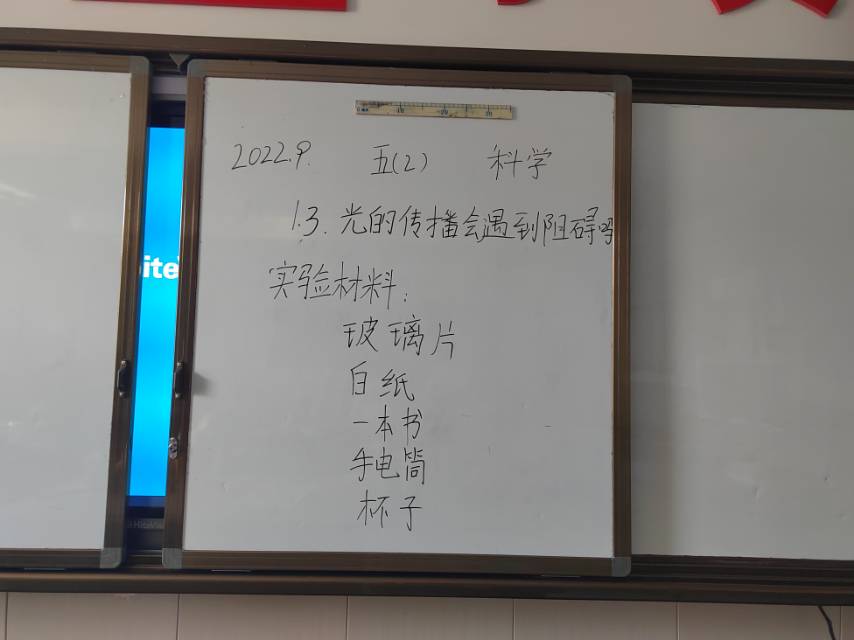 2022.9. 五(2) 科学
1.3. 光的传播会遇到阻碍吗
实验材料:
玻璃片
白纸
一本书
手电筒
杯子